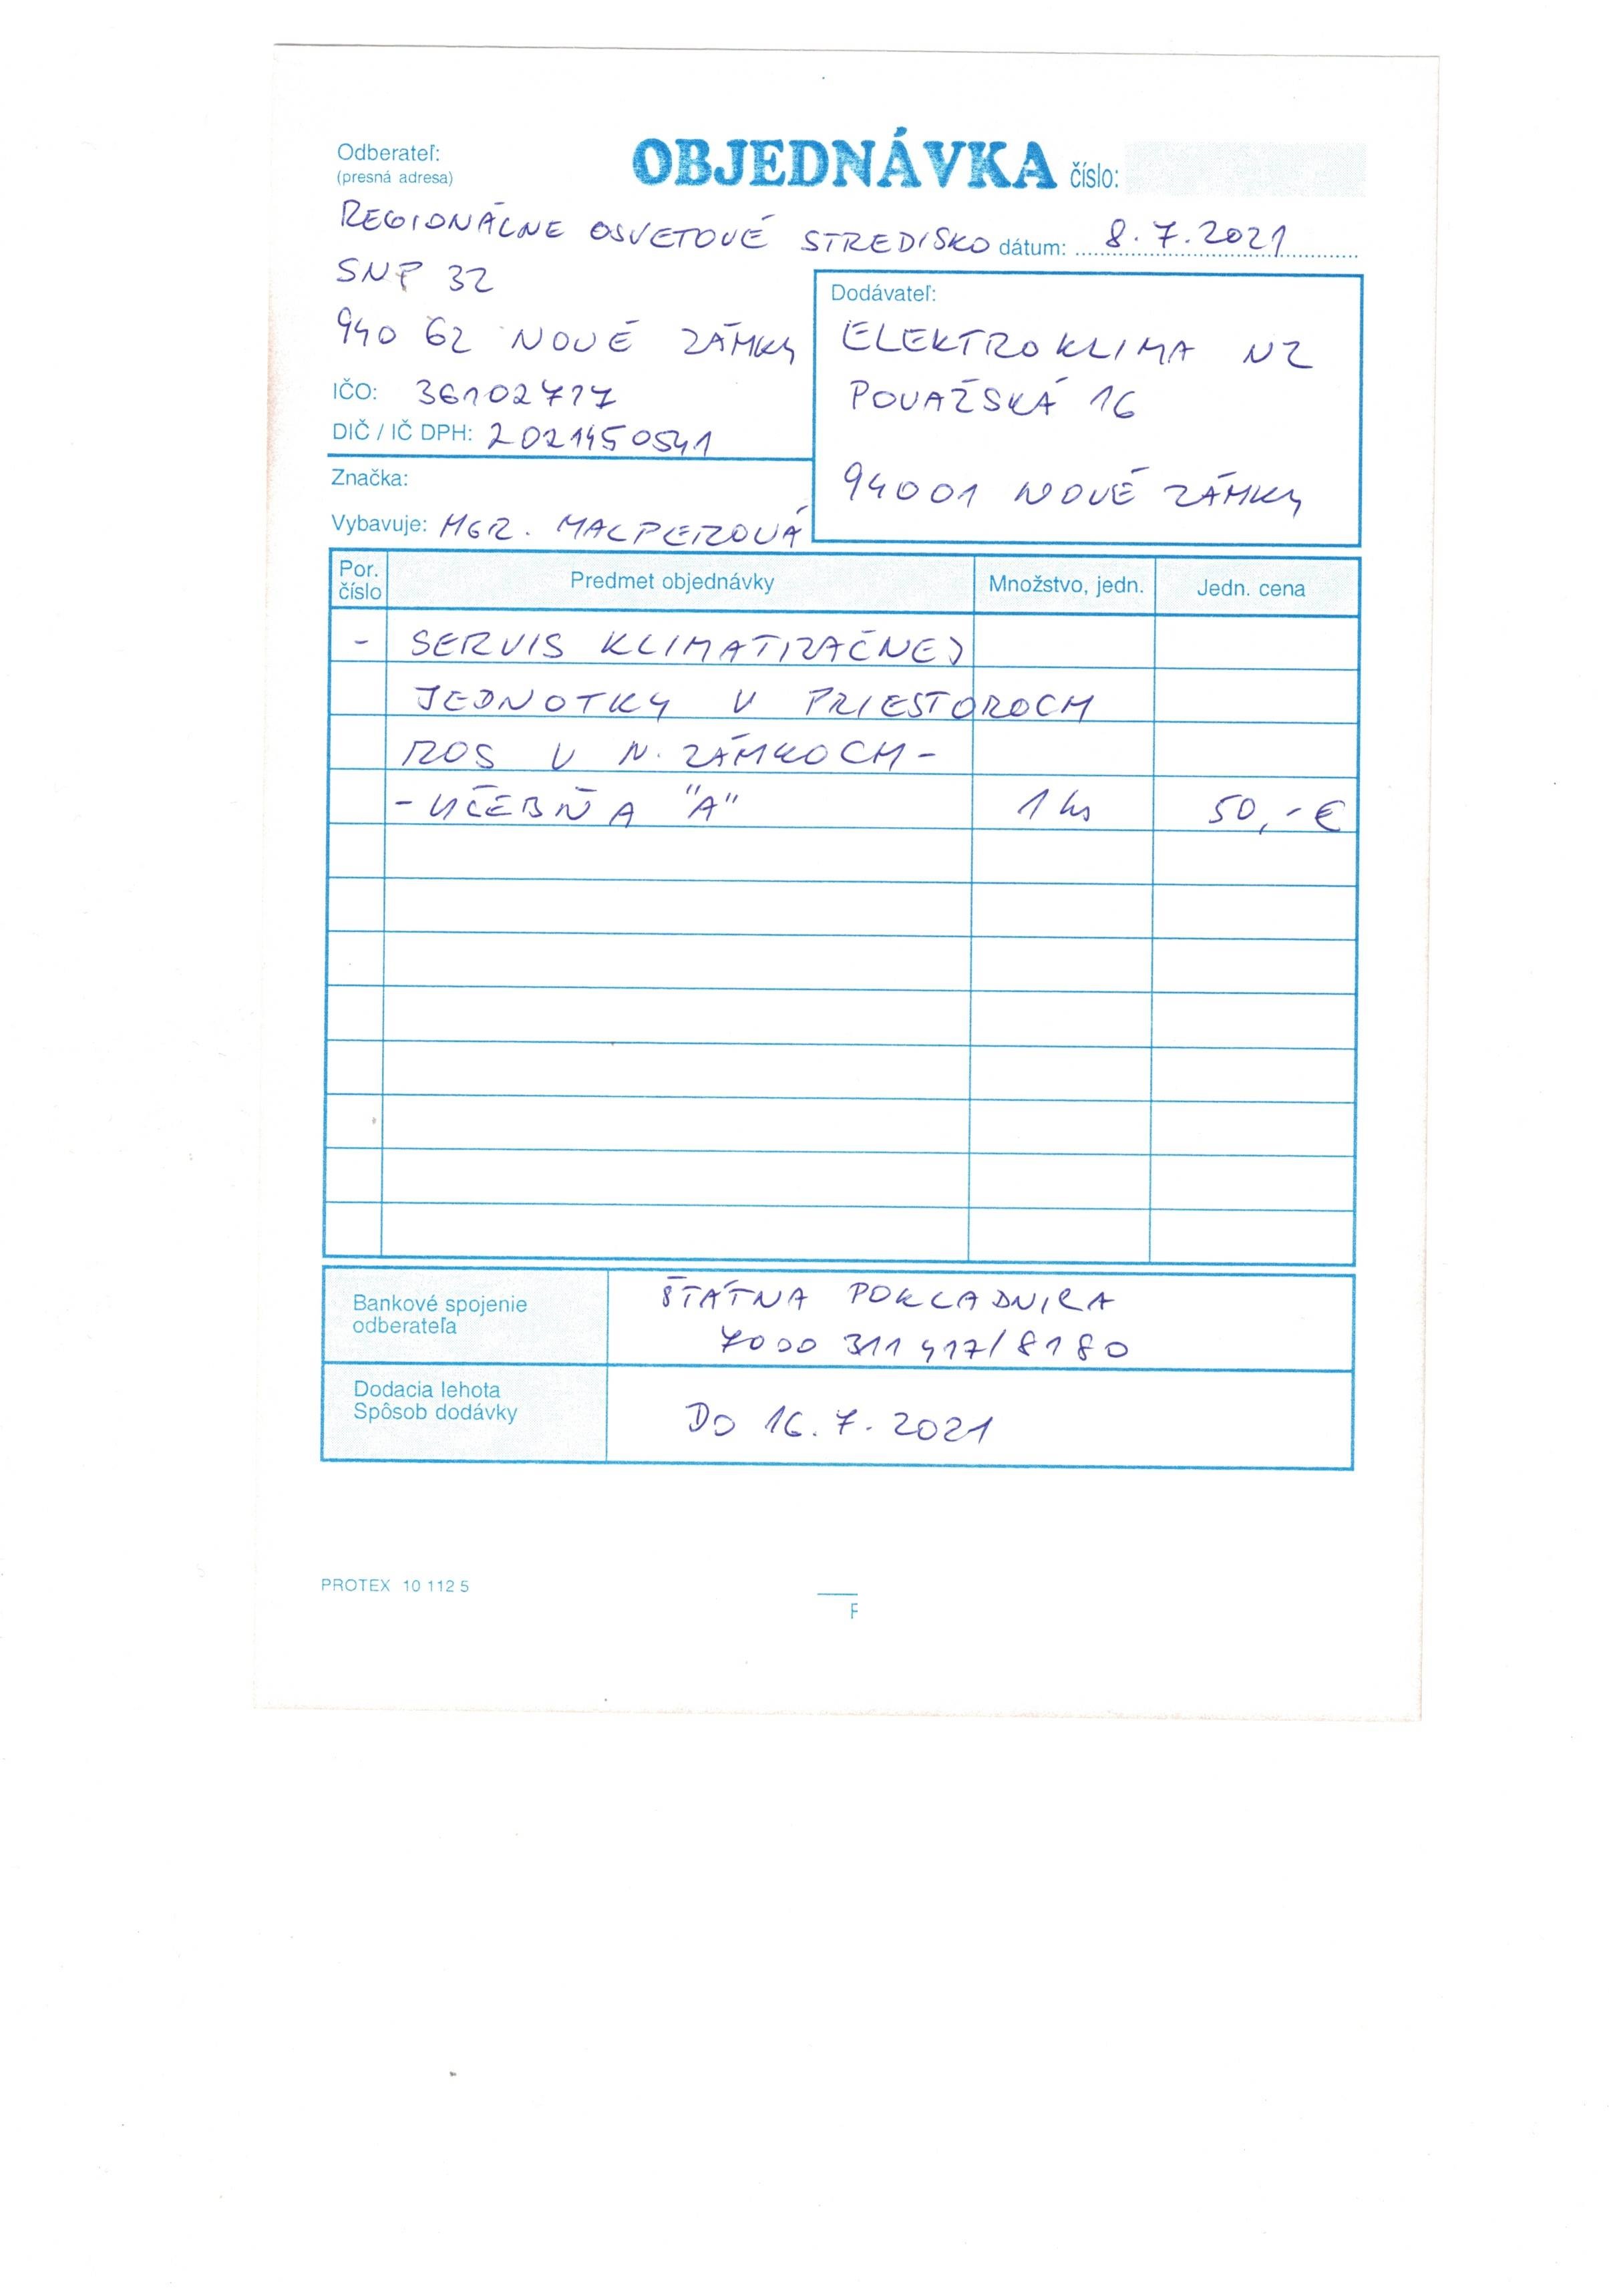 Odberateľ:
(presná adresa)
OBJEDNÁVKA číslo:
REGIONÁLNE OSVETOVÉ STREDISKO dátum: 8.7.2021
SNP 32
940 62 NOVÉ ZÁMKY
IČO: 36102717
DIČ / IČ DPH: 2021450541
Značka:
Vybavuje: MGR. MALPEROVÁ
Dodávateľ:
ELEKTROKLIMA NZ
POVAŽSKÁ 16
94001 NOVÉ ZÁMKY
Por. číslo Predmet objednávky Množstvo, jedn. Jedn. cena
- SERVIS KLIMATIZAČNEJ
JEDNOTKY V PRIESTOROCH
ROS V N. ZÁMKOCH -
- UČEBŇA "A" 1 ks 50,- €
Bankové spojenie
odberateľa
ŠTÁTNA POKLADNICA
7000 311 417/8180
Dodacia lehota
Spôsob dodávky
DO 16.7.2021
PROTEX 10 112 5
F